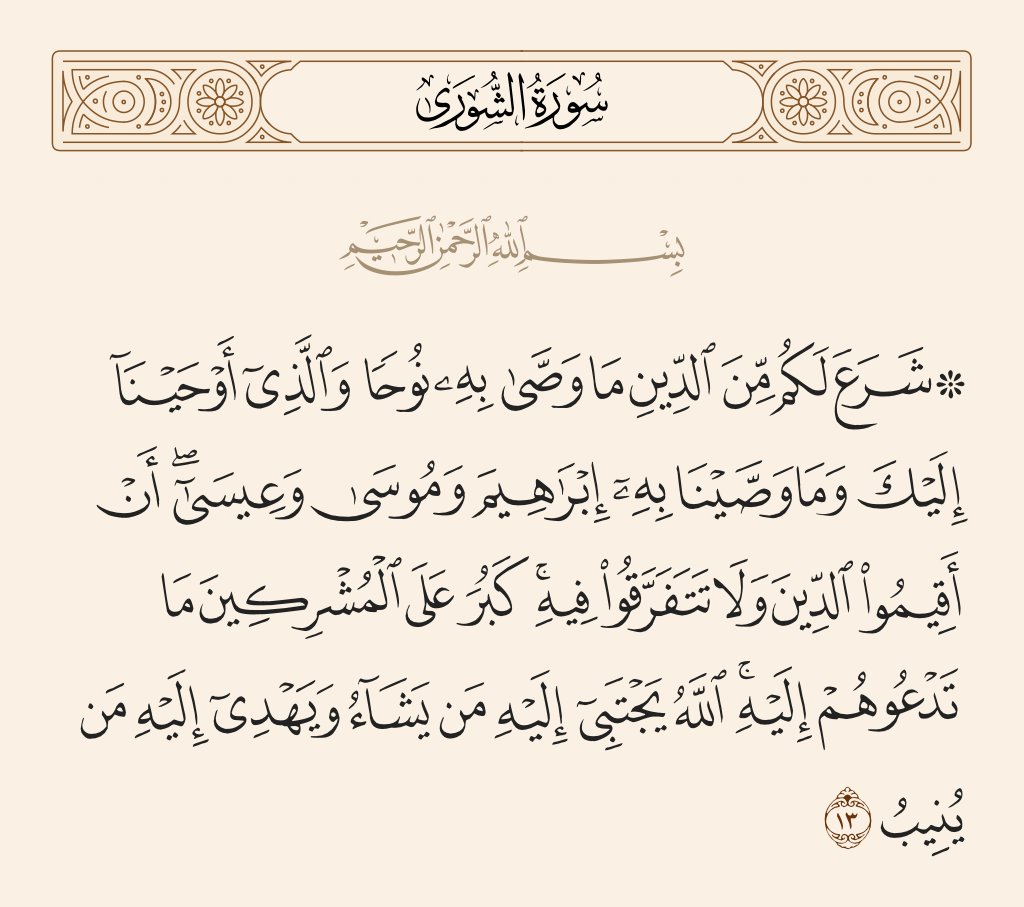 سُورَةُ الشُّورَىٰ
بِسْمِ ٱللَّهِ ٱلرَّحْمَٰنِ ٱلرَّحِيمِ
۞ شَرَعَ لَكُم مِّنَ ٱلدِّينِ مَا وَصَّىٰ بِهِۦ نُوحًا وَٱلَّذِىٓ أَوْحَيْنَآ
إِلَيْكَ وَمَا وَصَّيْنَا بِهِۦٓ إِبْرَٰهِيمَ وَمُوسَىٰ وَعِيسَىٰٓ ۖ أَنْ
أَقِيمُوا۟ ٱلدِّينَ وَلَا تَتَفَرَّقُوا۟ فِيهِ ۚ كَبُرَ عَلَى ٱلْمُشْرِكِينَ مَا
تَدْعُوهُمْ إِلَيْهِ ۚ ٱللَّهُ يَجْتَبِىٓ إِلَيْهِ مَن يَشَآءُ وَيَهْدِىٓ إِلَيْهِ مَن
يُنِيبُ ١٣